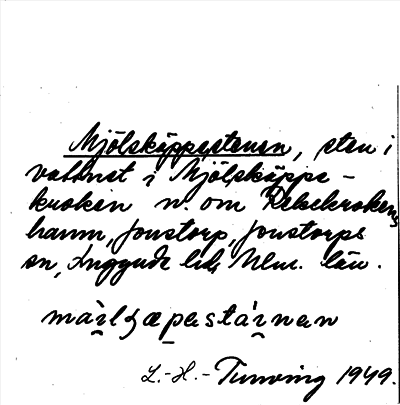 Mjölskäppestenen, sten i
vattnet i Mjölskäppe-
kroken n. om Rekekrokens
hamn, Jonstorp, Jonstorps
sn, Luggude hd, Mlm. län.
L.-H.- Tunving 1949.